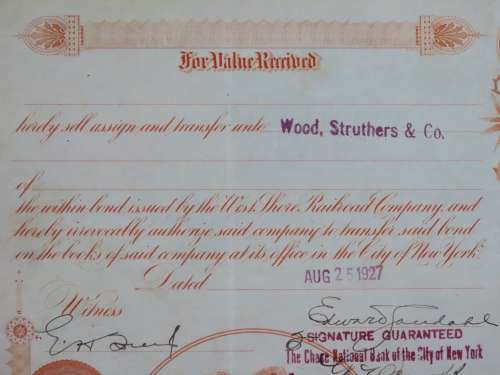 For Value Received
hereby sell assign and transfer unto Wood, Struthers & Co.
of
the within bond issued by the West Shore Railroad Company, and
hereby irrevocably authorize said company to transfer said bond
on the books of said company at its office in the City of New York.
Dated AUG 25 1927
Witness
Edward
SIGNATURE GUARANTEED
The Chase National Bank of the City of New York